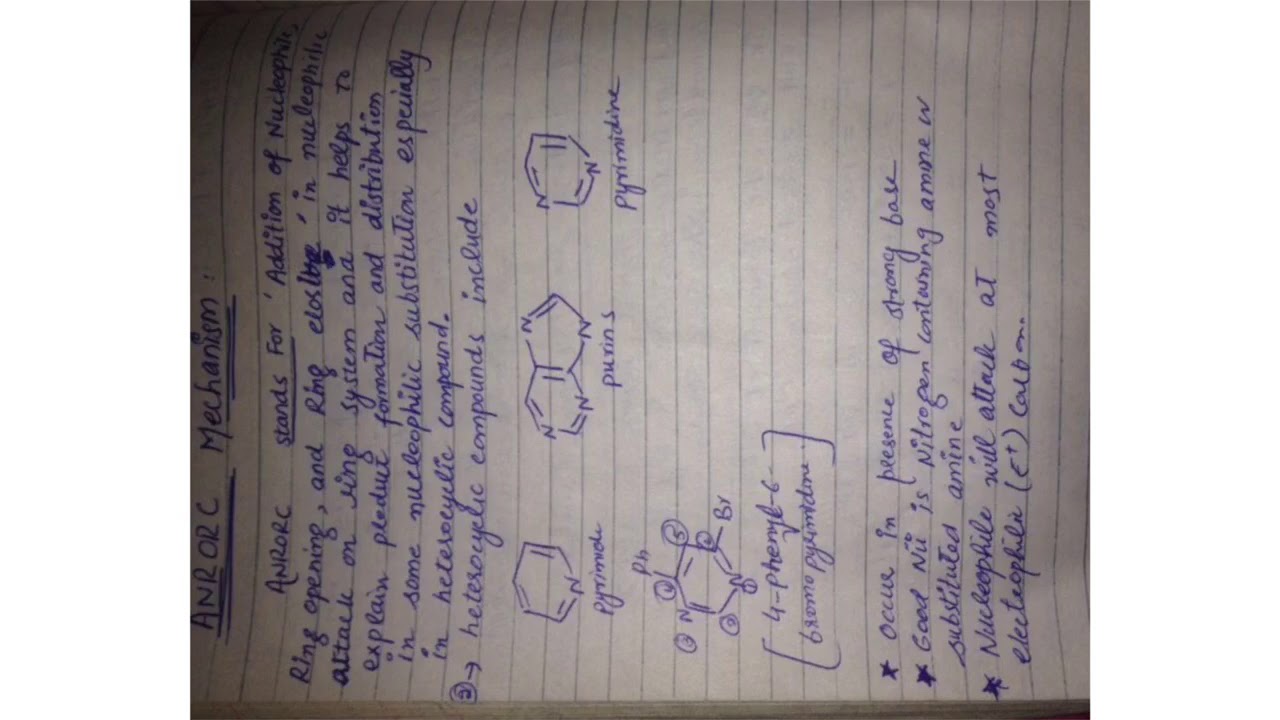 ANRORC Mechanism :
ANRORC stands For 'Addition of Nucleophile,
Ring opening, and Ring closure' in nucleophilic
attack on ring system and it helps to
explain product formation and distribution
in some nucleophilic substitution especially
in heterocyclic compound.
② → heterocyclic compounds include
N
N
N
N
N
N
N
pyrimidine
purins
Ph
③ N ④ ⑤
② N ① ⑥ Br
[4-phenyl-6-
bromopyrimidine]
* Occur in presence of strong base
* Good Nü is Nitrogen containing amine or
substituted amine
* Nucleophile will attack at most
electrophilic (C⁺) Carbon.